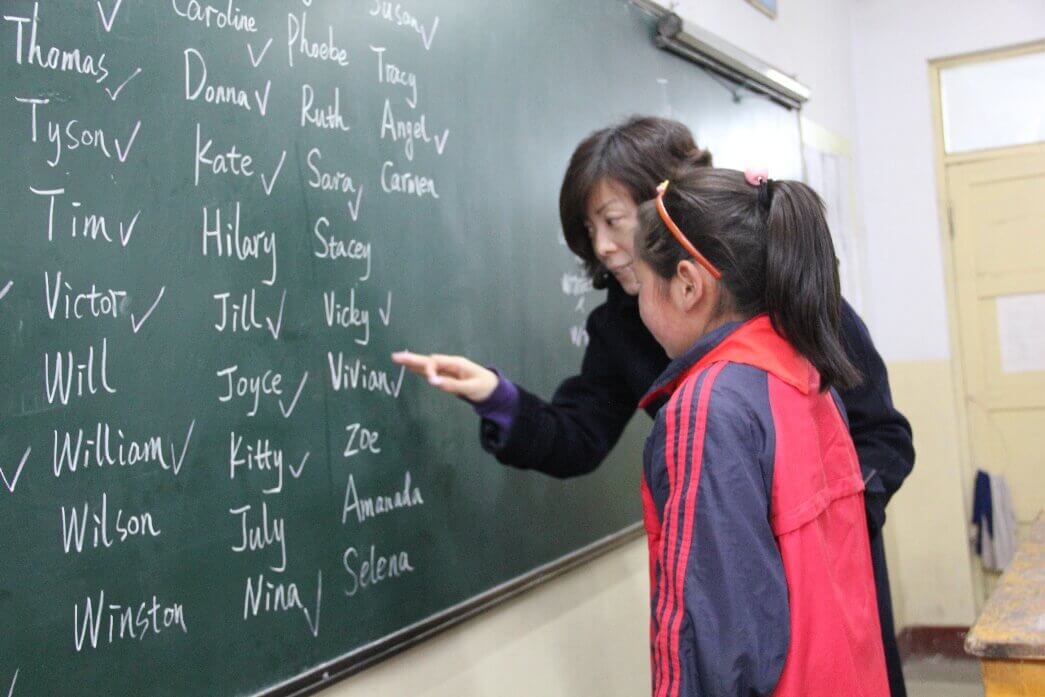 Thomas ✓
Tyson ✓
Tim ✓
Victor ✓
Will
William ✓
Wilson
Winston
Caroline ✓
Donna ✓
Kate ✓
Hilary
Jill ✓
Joyce ✓
Kitty ✓
July
Nina ✓
Phoebe
Ruth
Sara ✓
Stacey
Vicky ✓
Vivian ✓
Zoe
Amanada
Selena
Susan ✓
Tracy
Angel ✓
Carmen